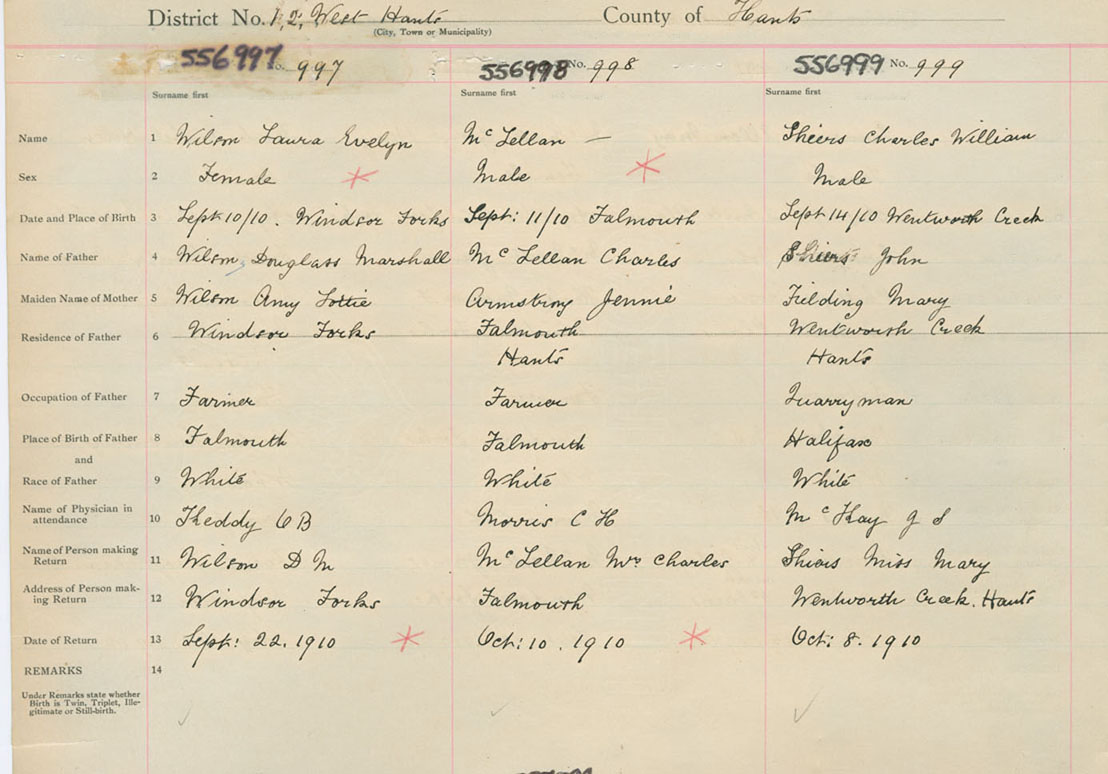 District No. 12, West Hants County of Hants
(City, Town or Municipality)
556997 No. 997 556998 No. 998 556999 No. 999
Surname first Surname first Surname first
Name 1 Wilson Laura Evelyn McLellan — Sheirs Charles William
Sex 2 Female Male Male
Date and Place of Birth 3 Sept 10/10. Windsor Forks Sept: 11/10 Falmouth Sept 14/10 Wentworth Creek
Name of Father 4 Wilson, Douglass Marshall McLellan Charles John
Maiden Name of Mother 5 Wilson Amy Lottie Armstrong Jennie Fielding Mary
Residence of Father 6 Windsor Forks Falmouth Wentworth Creek
Hants Hants
Occupation of Father 7 Farmer Farmer Quarryman
Place of Birth of Father 8 Falmouth Falmouth Halifax
and
Race of Father 9 White White White
Name of Physician in
attendance 10 B Morris C H McKay J S
Name of Person making
Return 11 Wilson D M McLellan Mrs Charles Miss Mary
Address of Person mak-
ing Return 12 Windsor Forks Falmouth Wentworth Creek. Hants
Date of Return 13 Sept: 22. 1910 Oct: 10. 1910 Oct: 8. 1910
REMARKS 14
Under Remarks state whether
Birth is Twin, Triplet, Ille-
gitimate or Still-birth.